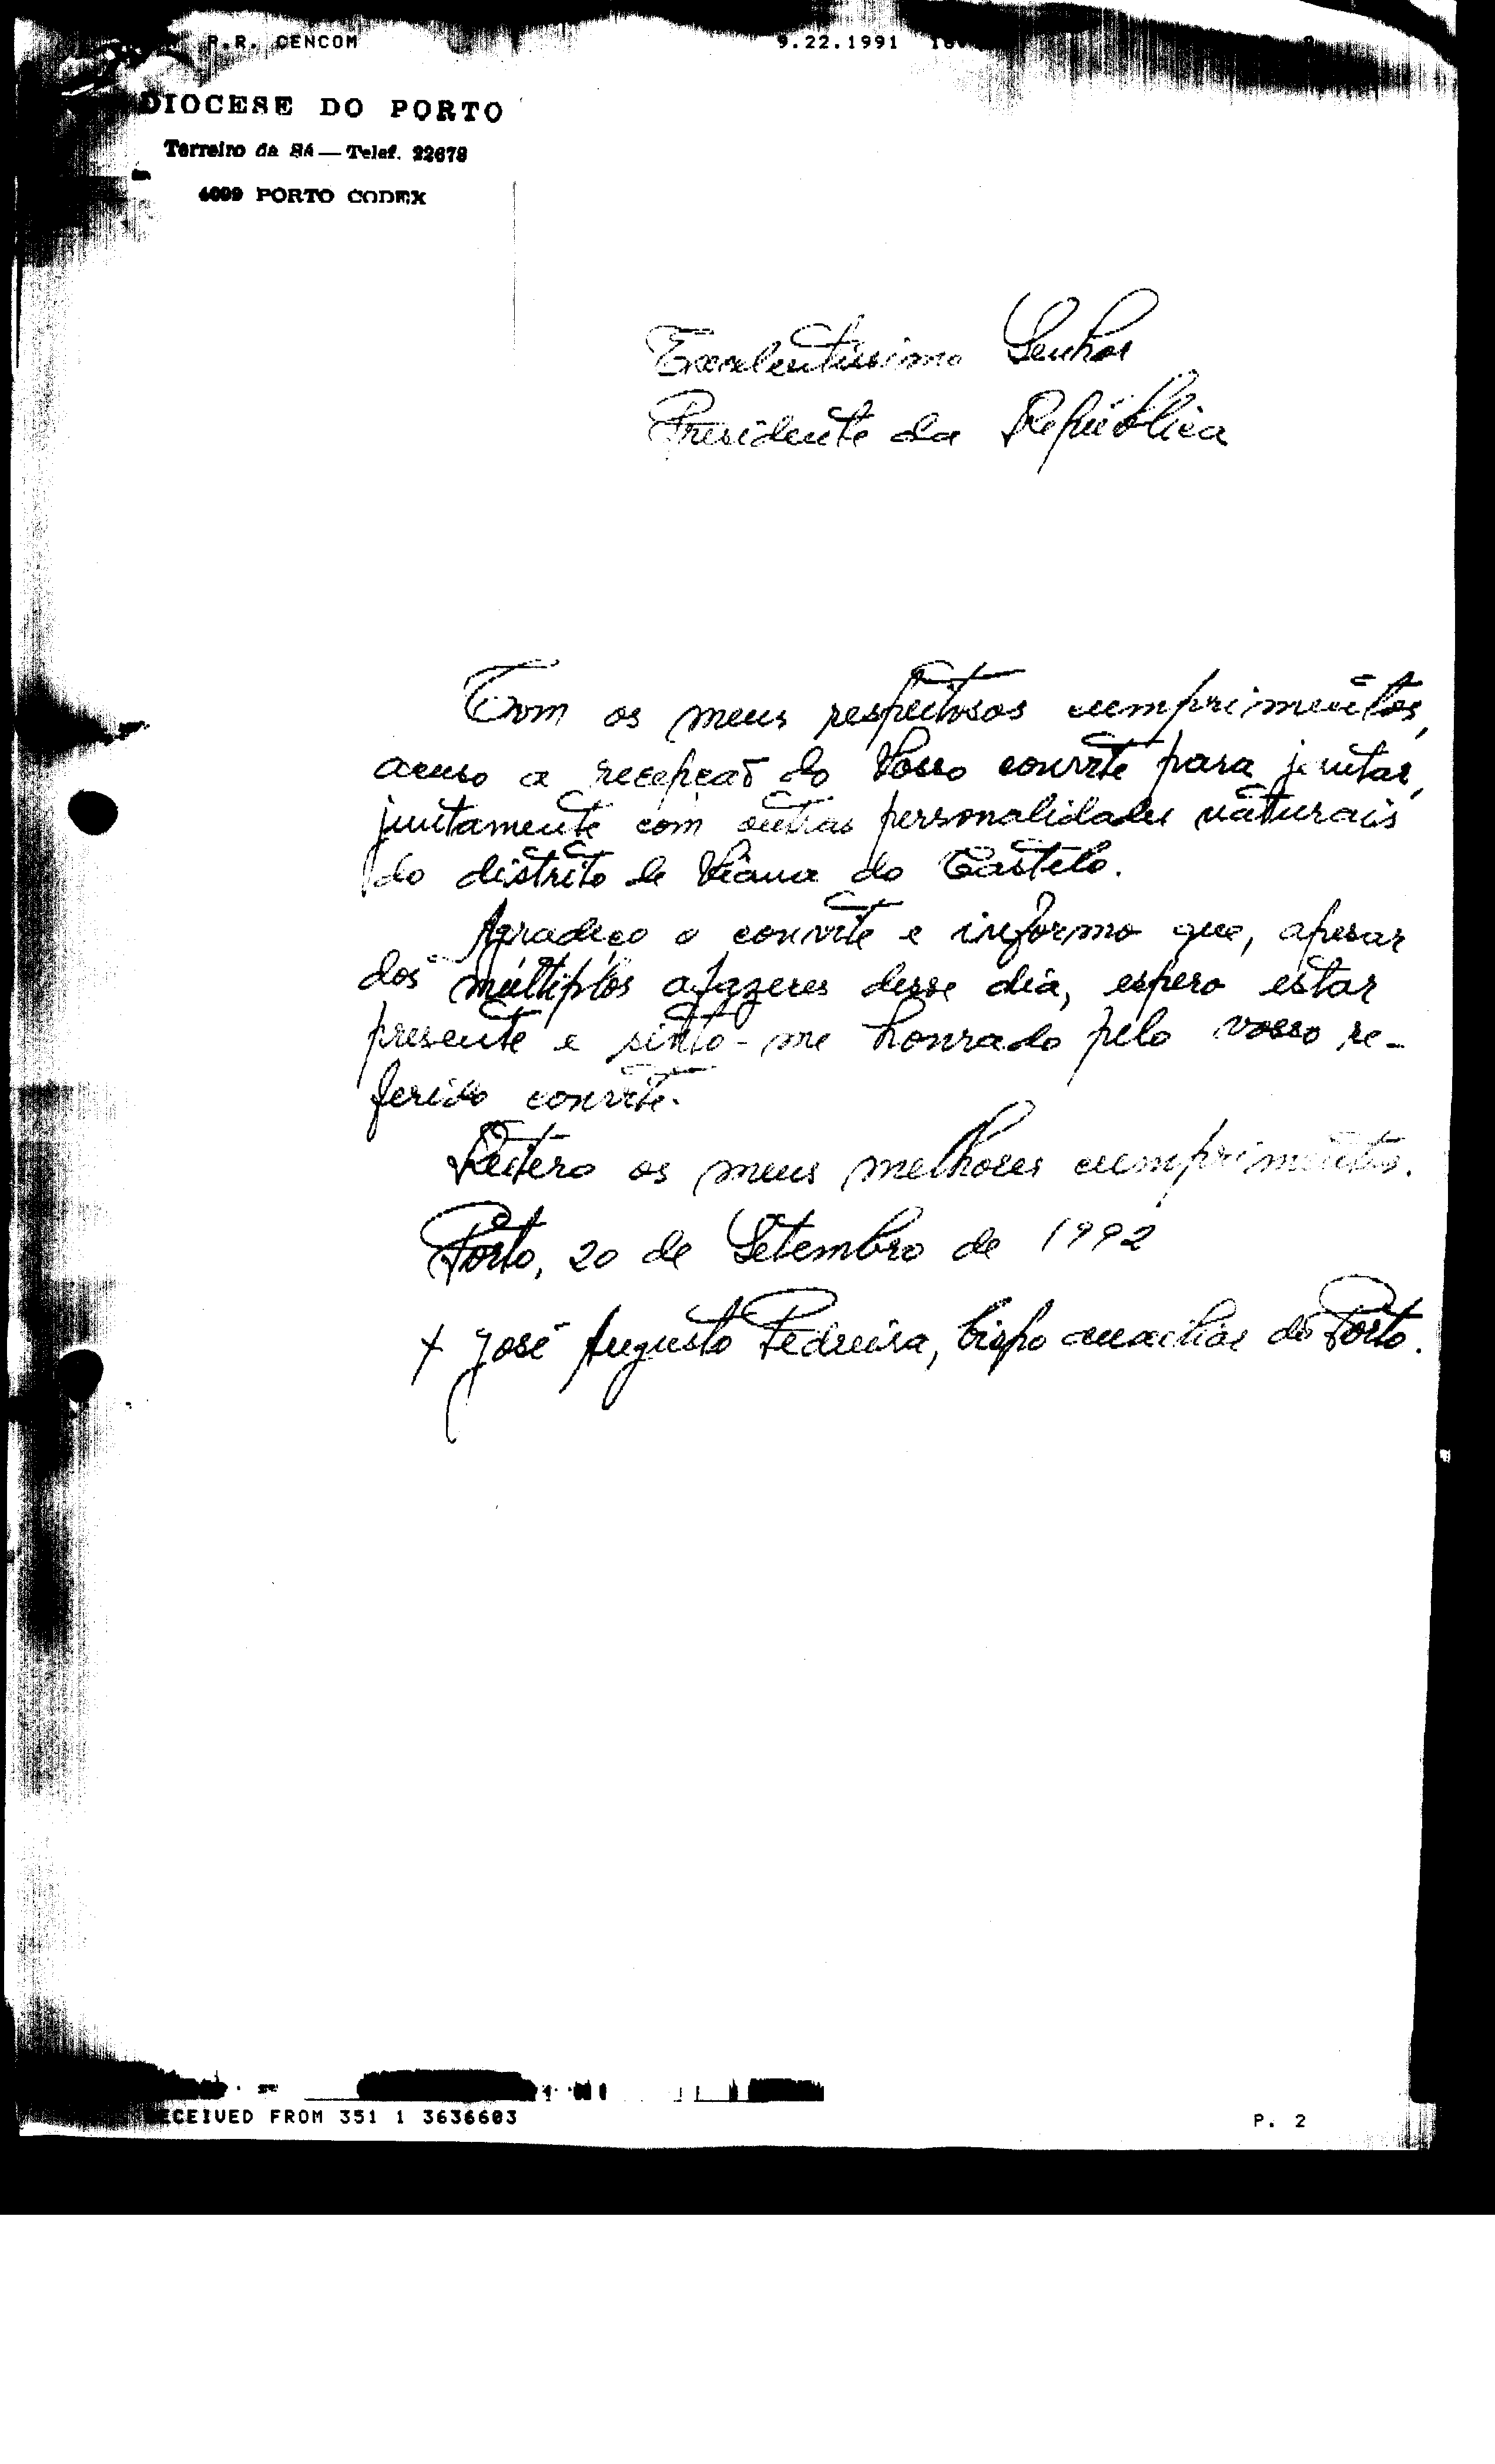 P.R. CENCOM 9.22.1991
DIOCESE DO PORTO
Terreiro da Sé — Telef. 22678
4099 PORTO CODEX
Excelentíssimo Senhor
Presidente da República
Com os meus respeitosos cumprimentos,
acuso a recepção do Vosso convite para jantar,
juntamente com outras personalidades naturais
do distrito de Viana do Castelo.
Agradeço o convite e informo que, apesar
dos múltiplos afazeres desse dia, espero estar
presente e sinto-me honrado pelo vosso re-
ferido convite.
Reitero os meus melhores cumprimentos.
Porto, 20 de Setembro de 1992
+ José Augusto Pedreira, bispo auxiliar do Porto.
RECEIVED FROM 351 1 3636603 P. 2